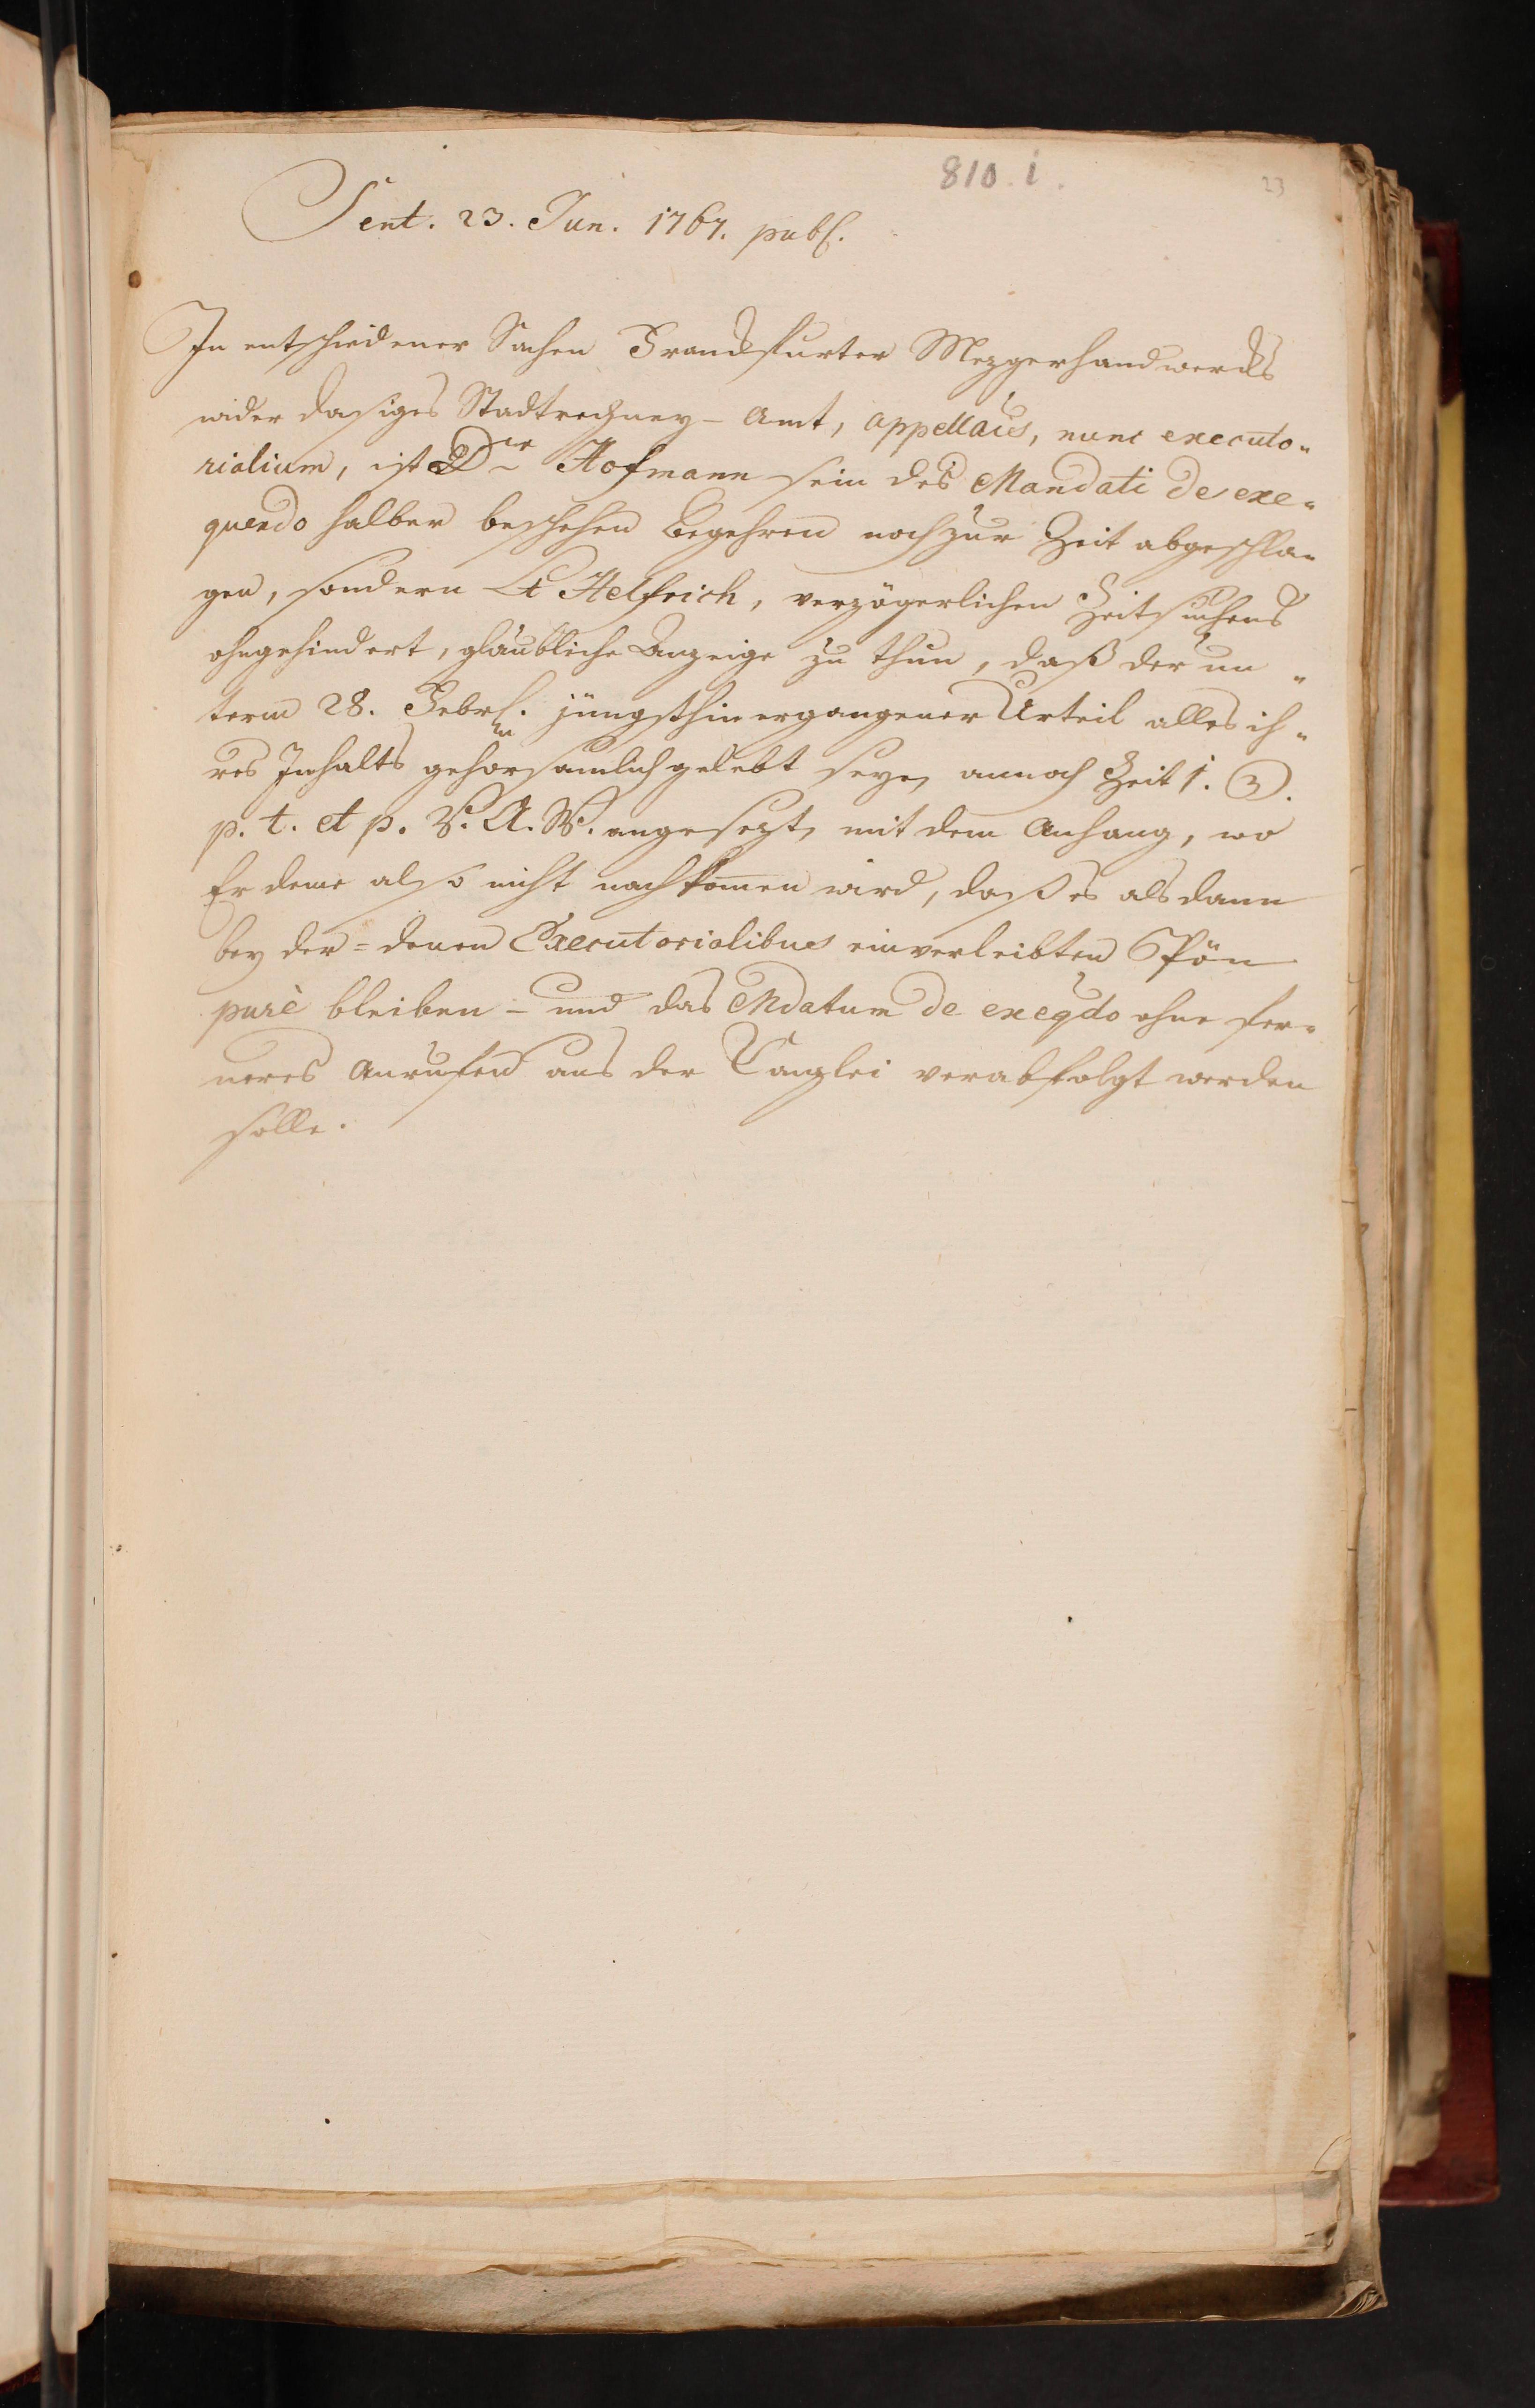 810. i.
23
Sent. 23. Jun. 1767. publ.
In entschiedener Sachen Franckfurter Mezgerhandwercks
wider dasiges Stadtrechney-Amt, appellaõis, nunc executo-
rialium, ist Dr Hofmann sein des Mandati de exe-
quendo halber beschehen Begehren noch zur Zeit abgeschla-
gen, sondern Lt Helfrich, verzögerlichen Zeitsuchens
ohngehindert, glaubliche Anzeige zu thun, daß der un-
term 28. Febr. jüngsthin ergangener Urteil alles ih-
res Inhalts gehorsamlich gelebt seye, annoch Zeit 1.
p. t. et p. V. A. W. angesezt, mit dem Anhang, wo
Er deme also nicht nachkomen wird, daß es alsdann
bey der = denen Executorialibus einverleibten Pön
purè bleiben - und das Mdatum de exeqdo ohne fer-
neres Anrufen aus der Canzlei verabfolgt werden
solle.